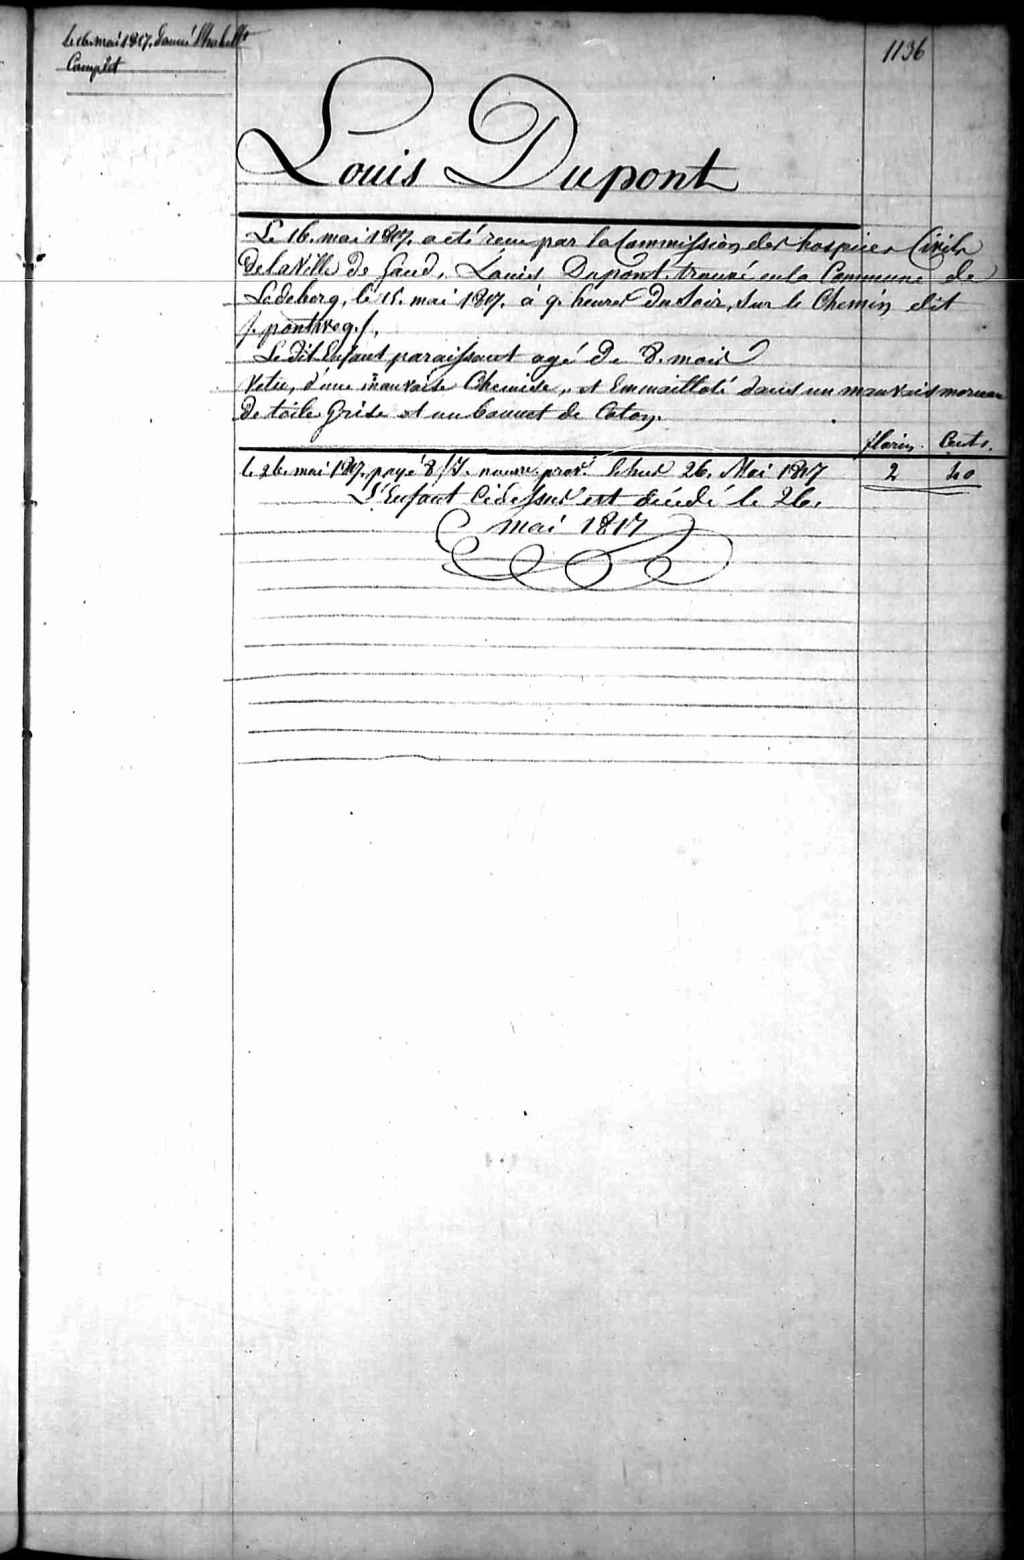 le 16. mai 1817. donné l'habillt
Complet
1136
Louis Dupont
Le 16. mai 1817. a eté recu par la Commission des hospices Civils
de la Ville de Gand, Louis Dupont, trouvé en la Commune de
Ledeberg, le 15. mai 1817. à 9. heures du Soir, sur le Chemin dit
pontweg,
Le dit Enfant paraissant agé de 8. mois
Vetu, d'une mauvaise Chemise, et Emmailloté dans un mauvais morceau
de toile Grise et un bonnet de Coton.
florins. Cents.
le 26. mai 1817. payé 8 J. nourr. prov. le hus 26. Mai 1817 2 40
L'Enfant Cidessus est décédé le 26.
mai 1817